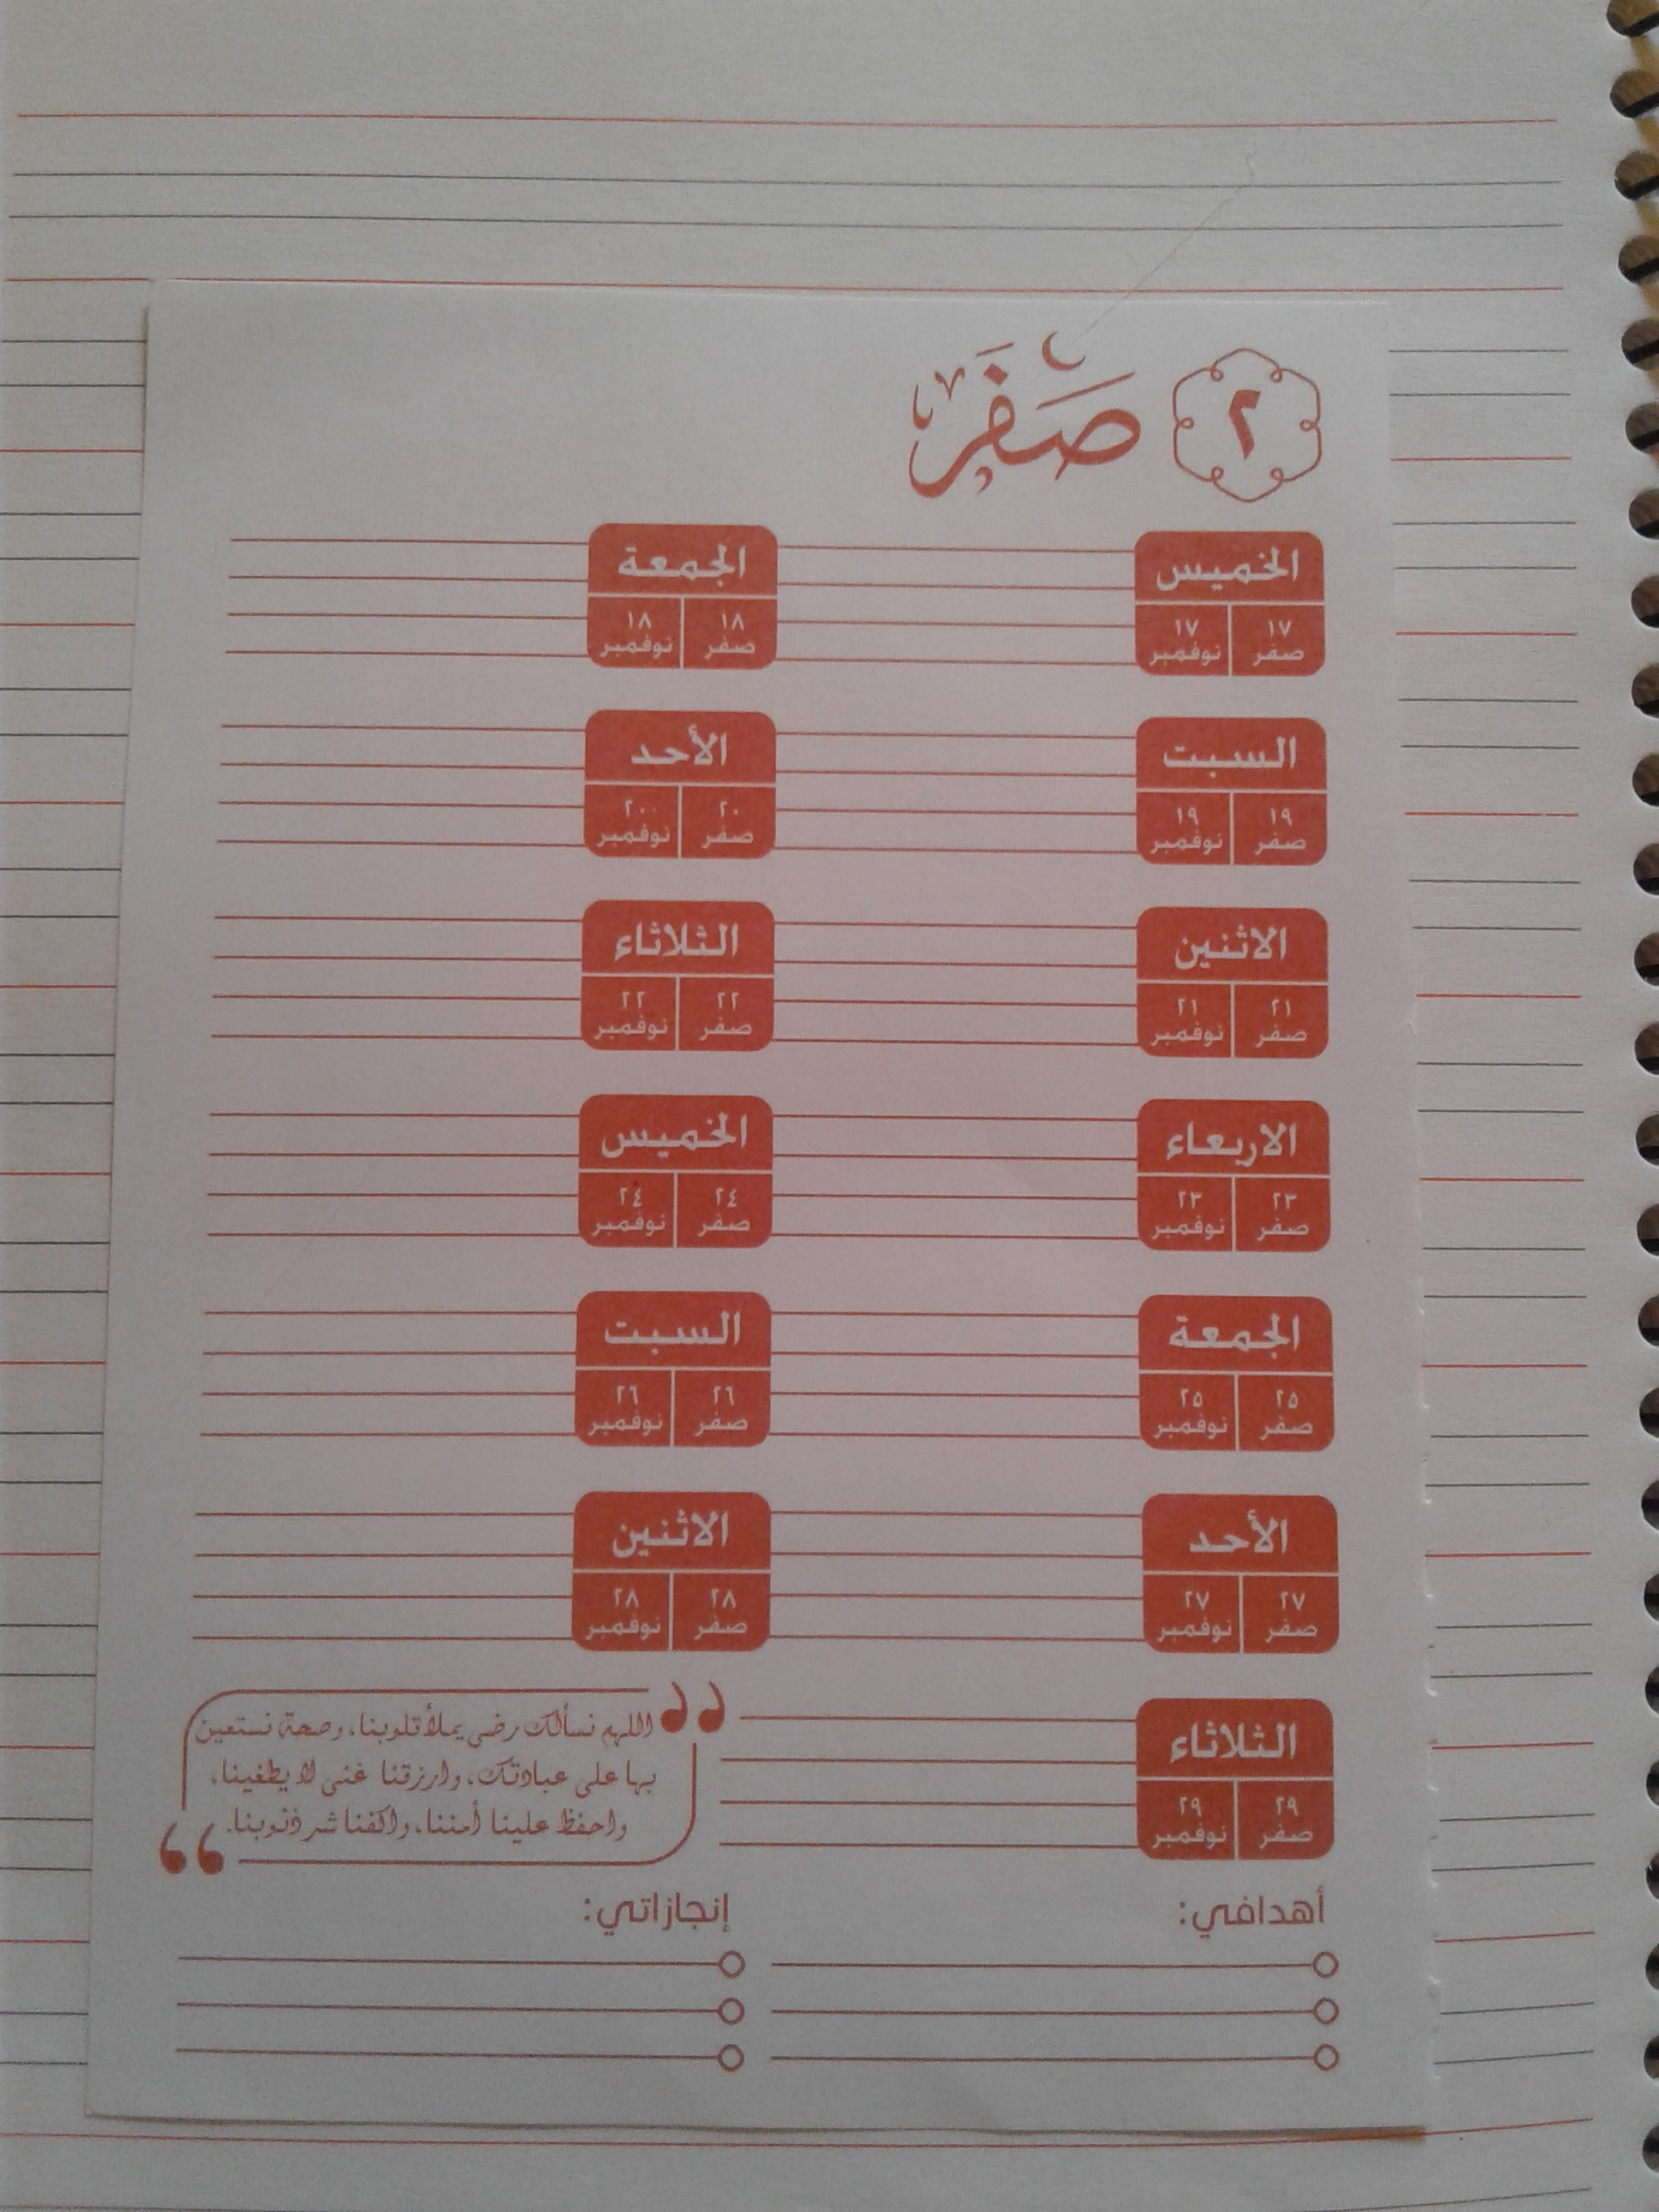 ٢ صَفَر
الخميس
١٧ صفر ١٧ نوفمبر
الجمعة
١٨ صفر ١٨ نوفمبر
السبت
١٩ صفر ١٩ نوفمبر
الأحد
٢٠ صفر ٢٠ نوفمبر
الاثنين
٢١ صفر ٢١ نوفمبر
الثلاثاء
٢٢ صفر ٢٢ نوفمبر
الاربعاء
٢٣ صفر ٢٣ نوفمبر
الخميس
٢٤ صفر ٢٤ نوفمبر
الجمعة
٢٥ صفر ٢٥ نوفمبر
السبت
٢٦ صفر ٢٦ نوفمبر
الأحد
٢٧ صفر ٢٧ نوفمبر
الاثنين
٢٨ صفر ٢٨ نوفمبر
الثلاثاء
٢٩ صفر ٢٩ نوفمبر
اللهم نسألك رضى يملأ قلوبنا، وصحة نستعين
بها على عبادتك، وارزقنا غنى لا يطغينا،
واحفظ علينا أمننا، واكفنا شر ذنوبنا.
أهدافي:
إنجازاتي: